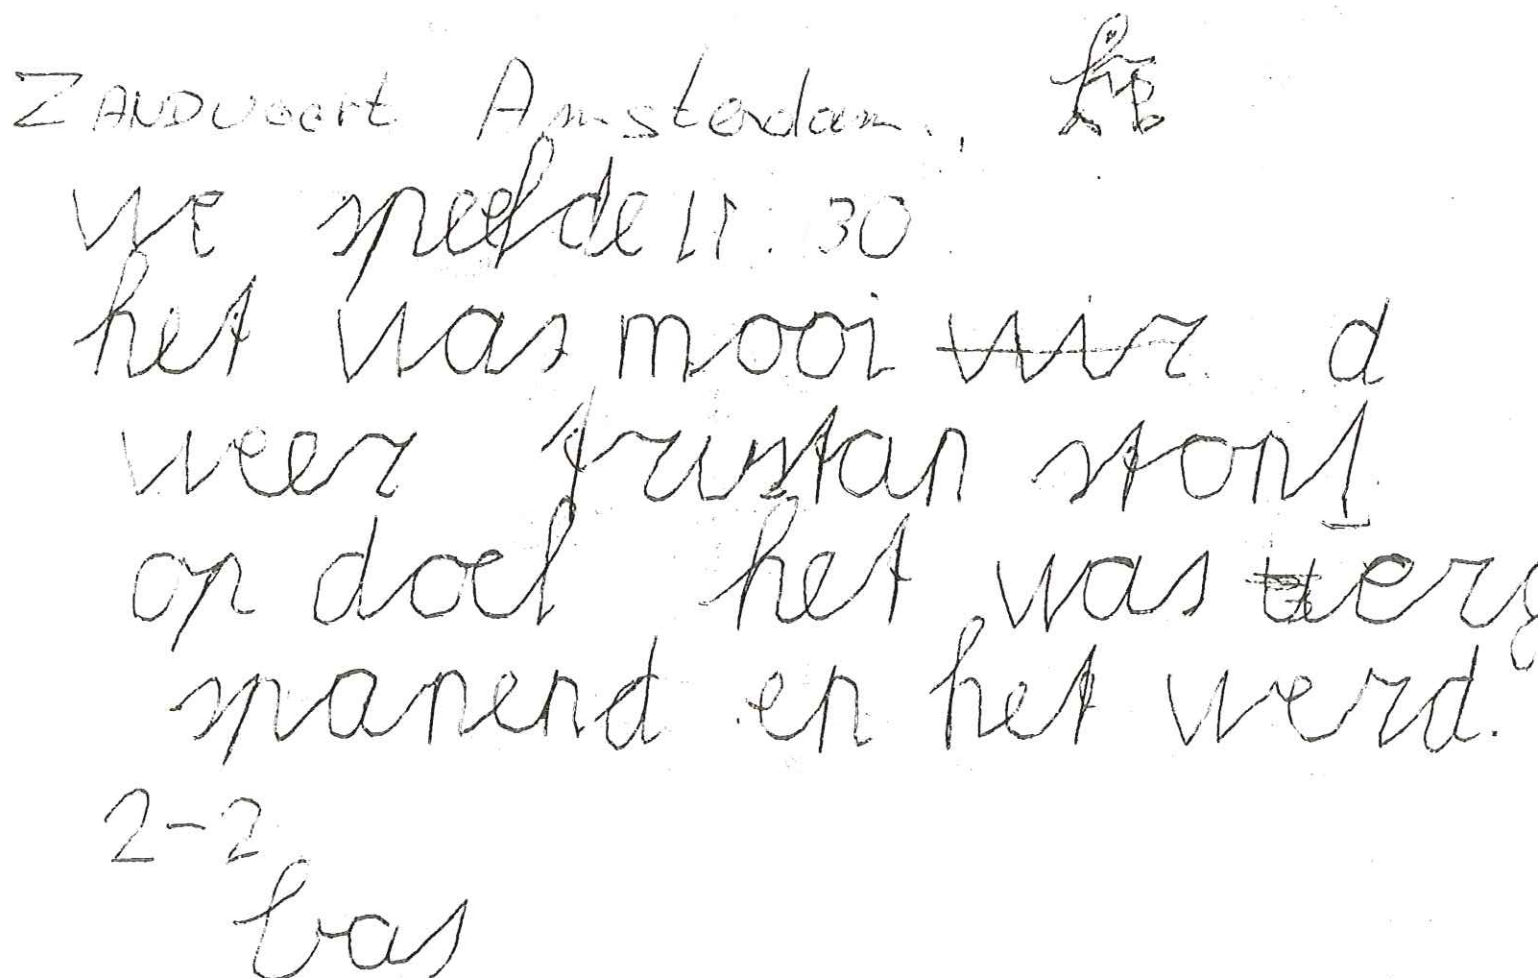 ZANDVoort Amsterdam.,
we speelde 11:30
het was mooi
weer tristan stont
op doel het was erg
spanend en het werd.
2-2
bas